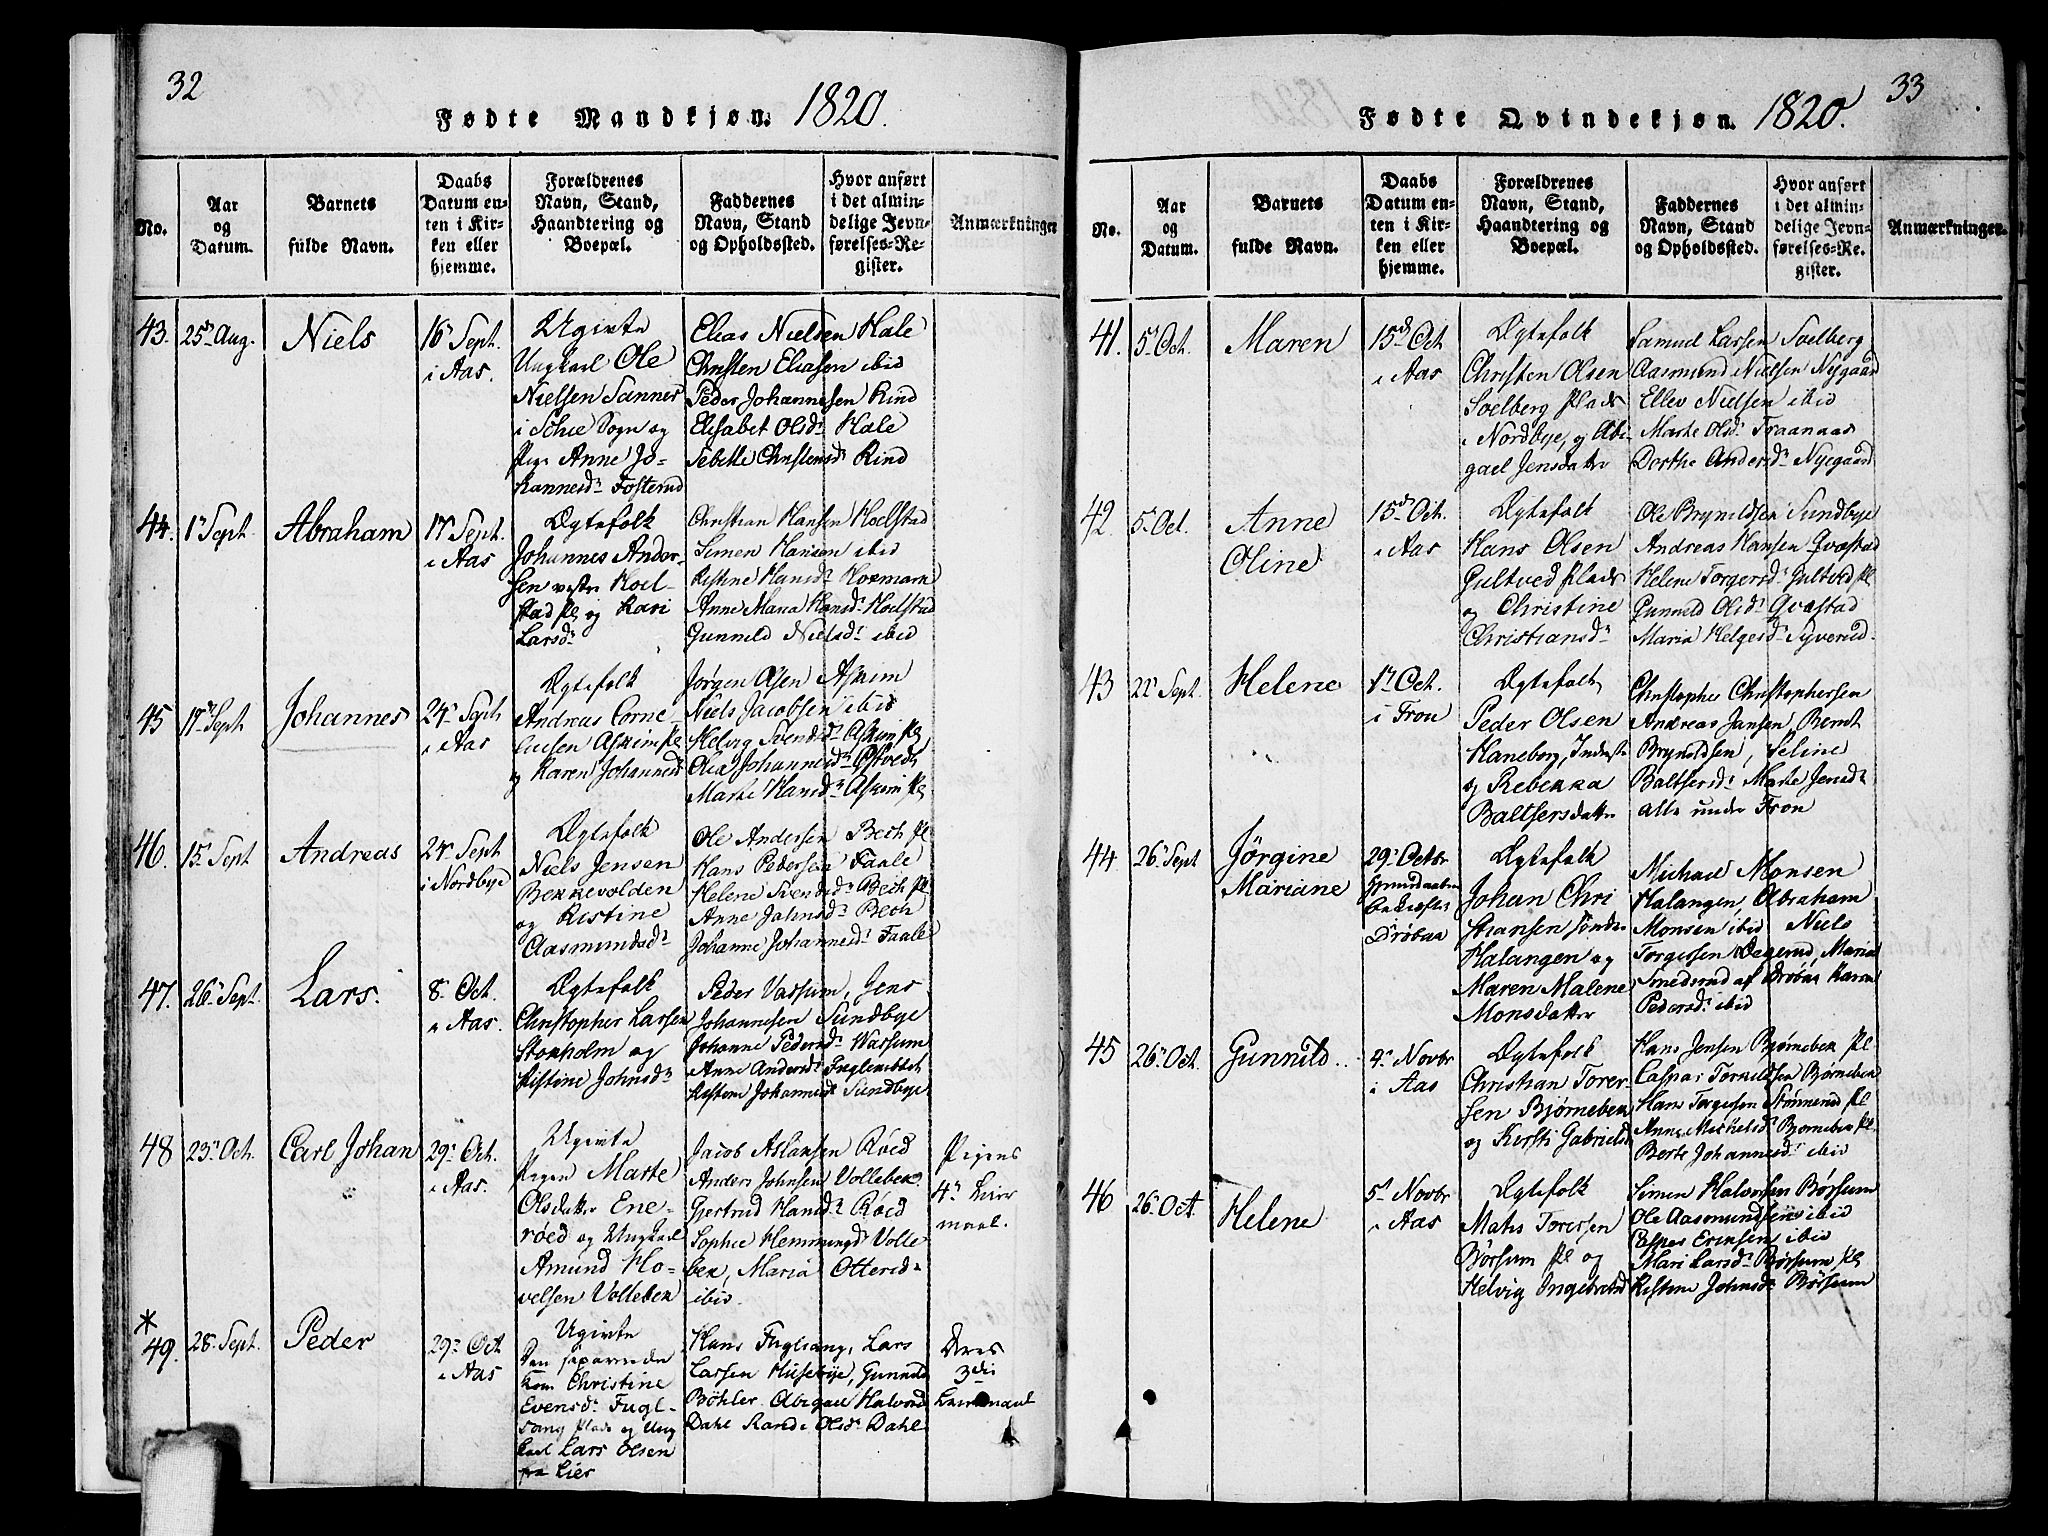 32
Fødte Mandkjøn. 1820.
No.
Aar
og
Datum.
Barnets
fulde Navn.
Daabs
Datum en-
ten i Kir-
ken eller
hjemme.
Forældrenes
Navn, Stand,
Haandtering og
Boepæl.
Faddernes
Navn, Stand
og Opholdssted.
Hvor anført
i det almin-
delige Jevn-
førelses-Re-
gister.
Anmærkninger
43. 25de Aug.
Niels
16 Sept.
i Aas.
Ugivte
Ungkarl Ole
Nielsen Sanner
i Schie Sogn og
Pige Anne Jo-
hannesdr Fosterud
Elias Nielsen Hale
Christen Eliasen ibid
Peder Johannesen Rind
Elisabet Olsdr Hale
Sebille Christensdr Rind
44. 1 Sept.
Abraham
17 Sept.
i Aas
Ægtefolk
Johannes Ander-
sen vestre Hoel-
stad pl og Kari
Larsdr
Christian Hansen Hoelstad
Simen Hansen ibid
Kistine Hansdr Hormark
Anne Maria Hansdr Hoelstad
Gunneld Nielsdr ibid
45 17 Sept
Johannes
24 Sept
i Aas
Ægtefolk
Andreas Corne-
liusen Askim pl
og Karen Johannesd
Jørgen Olsen Askim
Niels Jacobsen ibid
Helvig Svendsdr Askim pl
Olea Johannesdr Østvedt
Marte Hansdr Askim pl
46. 15 Sept
Andreas
24 Sept
i Nordbye
Ægtefolk
Niels Jensen
Bekkevolden
og Kistine
Aasmundsdr
Ole Andersen Bech pl
Hans Pedersen Faale
Helene Svendsdr Bech pl
Anne Jahnsdr Bech
Johanne Johannesdr Faale
47. 26 Sept.
Lars.
8 Oct.
i Aas.
Ægtefolk
Christopher Larsen
Stokholm og
Kistine Johnsdr
Peder Vassum, Jens
Johannesen Sundbye
Johanne Pedersdr Wassum
Anne Andersdr Fuglesettet
Kistine Johannesdr Sundbye
48 23 Oct.
Carl Johan
29 Oct.
i Aas.
Ugivte
Pigen Marte
Olsdatter Ene-
røed og Ungkarl
Amund Ho-
velsen Vollebek
Jacob Aslaksen Røed
Anders Johnsen Vollebek
Gjertrud Hansdr Røed
Sophie Hemmingsd Volle
bek, Maria Ottersdr
ibid.
Pigens
4de Leier
maal.
*
49. 28 Sept.
Peder
29 Oct
i Aas
Ugivte
Den separerede
Kone Christine
Evensdr Fugl-
sang plads og Ung
karl Lars Olsen
fra Lier
Hans Fuglsang, Lars
Larsen Husebye, Gunneld
Bøhler Abigael Halvorsd
Dahl Randi Olsdr Dahl
Deres
3die
Leiermaal
33
Fødte Qvindekjøn. 1820.
No.
Aar
og
Datum.
Barnets
fulde Navn.
Daabs
Datum en-
ten i Kir-
ken eller
hjemme.
Forældrenes
Navn, Stand,
Haandtering og
Boepæl.
Faddernes
Navn, Stand
og Opholdssted.
Hvor anført
i det almin-
delige Jevn-
førelses-Re-
gister.
Anmærkninger.
41. 5 Oct.
Maren
15d Oct
i Aas
Ægtefolk
Christen Olsen
Soelberg plads
i Nordbye, og Abi-
gael Jensdatter
Samuel Larsen Soelberg
Aasmund Nielsen Nygaard
Ellev Nielsen ibid
Marte Olsdr Fraanaas
Dorthe Andersdr Nyegaard
42. 5 Oct.
Anne
Oline
15d Oct.
i Aas
Ægtefolk
Hans Olsen
Gultved plads
og Christine
Christiansdr
Ole Brynildsen Sundbye
Andreas Hansen Qvæstad
Helene Torgersdr Gultved pl
Gunneld Olsdr Qvæstad
Maria Helgesdr Syverud
43 22 Sept.
Helene
1 Oct.
i Fron
Ægtefolk
Peder Olsen
Haneborg, Inderste
og Rebekka
Baltsersdatter
Christopher Christophersen
Andreas Jansen, Berndt
Brynildsen, Seline
Baltsersdr Marte Jensdr
alle under Fron
44 26 Sept
Jörgine
Mariane
29 Octbr
Drøbak
Ægtefolk
Johan Chri
stiansen søndre
Halangen og
Maren Malene
Monsdatter
Michael Monsen
Halangen, Abraham
Monsen ibid Niels
Torgersen Degerud, Maria
Smedsrud af Drøbak Karen
Pedersdr ibid
45 26 Oct.
Gunnild..
4 Novbr
i Aas
Ægtefolk
Christian Torer-
sen Bjørnebek
og Kersti Gabrielsd
Hans Jensen Bjørnebek pl
Caspar Torkildsen Bjørnebek
Hans Torgersen Stønnerud pl
Anne Mickelsdr Bjørnebek pl
Berte Johannesdr ibid
46 26 Oct.
Helene
5 Novbr
i Aas
Ægtefolk
Mats Torersen
Børsum pl og
Helvig Ingebretsd
Simen Halvorsen Børsum
Ole Aasmundsen ibid
Asper Eriksen ibid
Mari Larsdr Børsum pl
Kistine Johnsdr Børsum